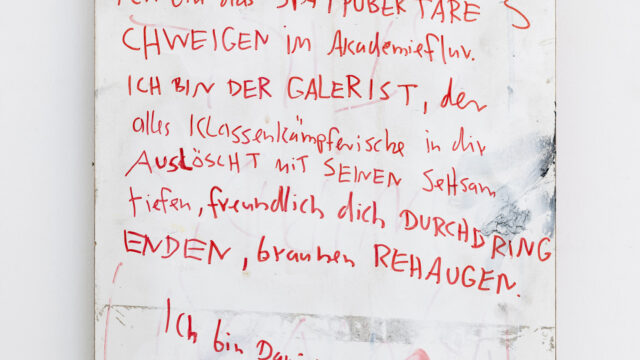 Ich bin das SPÄTPUBERTÄRE S
CHWEIGEN im Akademieflur.
ICH BIN DER GALERIST, der
alles Klassenkämpferische in dir
AUSLÖSCHT MIT SEINEN SeltSam
tiefen, freundlich dich DURCHDRING
ENDEN, braunen REHAUGEN.
Ich bin